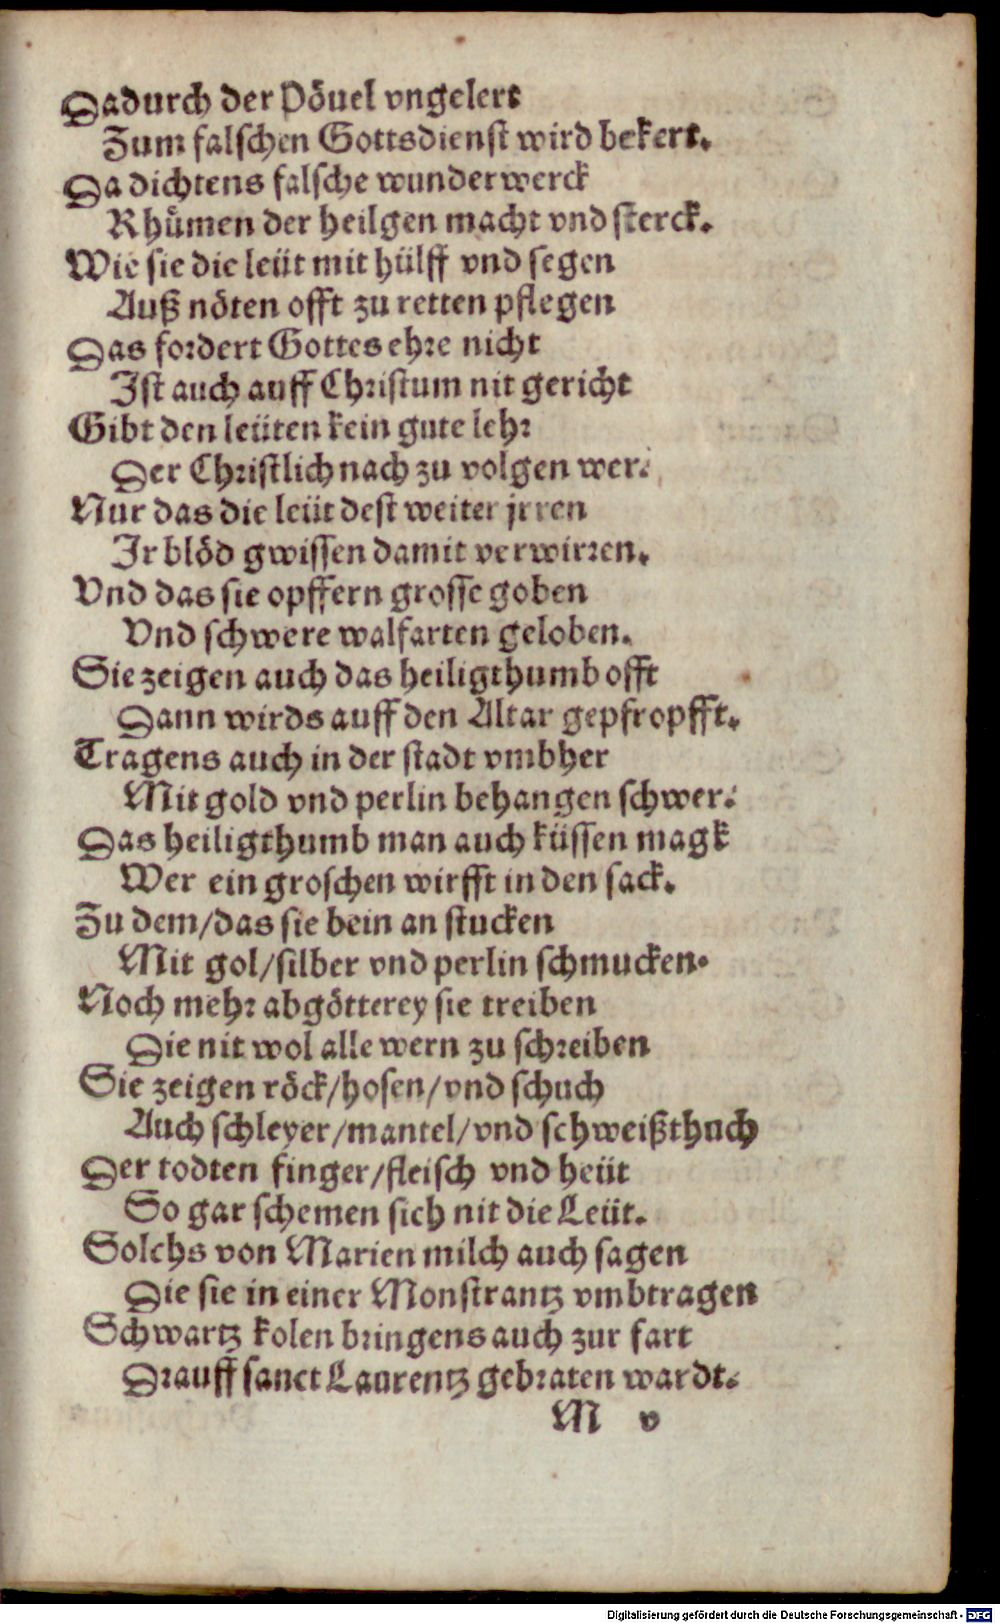 Dadurch der Pövel vngelert
Zum falschen Gottsdienst wird bekert.
Da dichtens falsche wunderwerck
Rhůmen der heilgen macht vnd sterck.
Wie sie die leüt mit hülff vnd segen
Auß nöten offt zu retten pflegen
Das fordert Gottes ehre nicht
Ist auch auff Christum nit gericht
Gibt den leüten kein gute lehr
Der Christlich nach zu volgen wer.
Nur das die leüt dest weiter jrren
Ir blöd gwissen damit verwirren.
Vnd das sie opffern grosse goben
Vnd schwere walfarten geloben.
Sie zeigen auch das heiligthumb offt
Dann wirds auff den Altar gepfropfft.
Tragens auch in der stadt vmbher
Mit gold vnd perlin behangen schwer.
Das heiligthumb man auch küssen magk
Wer ein groschen wirfft in den sack.
Zu dem/das sie bein an stucken
Mit gol/silber vnd perlin schmucken.
Noch mehr abgötterey sie treiben
Die nit wol alle wern zu schreiben
Sie zeigen röck/hosen/vnd schuch
Auch schleyer/mantel/vnd schweißthuch
Der todten finger/fleisch vnd heüt
So gar schemen sich nit die Leüt.
Solchs von Marien milch auch sagen
Die sie in einer Monstrantz vmbtragen
Schwartz kolen bringens auch zur fart
Drauff sanct Laurentz gebraten wardt.
M v
Digitalisierung gefördert durch die Deutsche Forschungsgemeinschaft - DFG